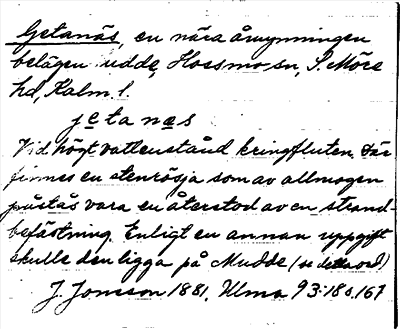 Getanäs, en nära åmynningen
belägen udde, Hossmo sn, S. Möre
hd, Kalm. l.
jetanes
Vid högt vattenstånd kringfluten. Där
finnes en stenrösja som av allmogen
påstås vara en återstod av en strand-
befästning. Enligt en annan uppgift
skulle den ligga på Mudde (se detta ord)
J. Jonsson 1881, Ulma 93:18 s. 167